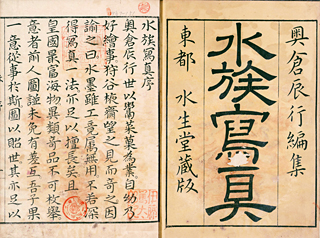 奥倉辰行編集
水族寫真
東都 水生堂蔵版
水族寫真序
奥倉辰行世以鬻菜菓為業自幼乃
好繪事狩谷棭齋望之見而奇之因
諭之曰水墨雖工竟屬無用不若深
得寫真一法亦足以擅長矣且
皇國最富海物異類奇品不可枚舉
意者前人圖譜未免有差互吾子果
一意從事於斯圖以貽世其亦足以